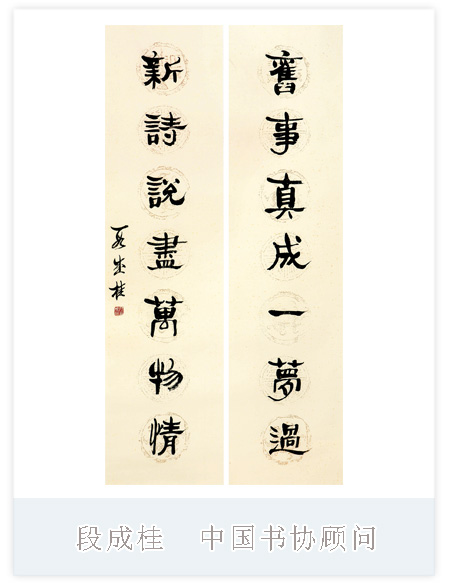 舊事真成一夢過
新詩說盡萬物情
段成桂
段成桂 中国书协顾问